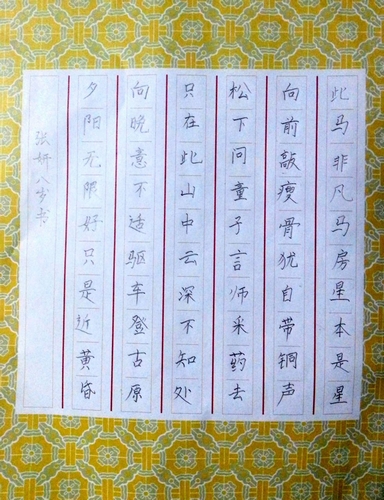 此马非凡马房星本是星
向前敲瘦骨犹自带铜声
松下问童子言师采药去
只在此山中云深不知处
向晚意不适驱车登古原
夕阳无限好只是近黄昏
张妍八岁书